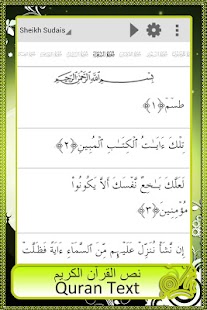 Sheikh Sudais
بِسْمِ ٱللَّهِ ٱلرَّحْمَٰنِ ٱلرَّحِيمِ
طسٓمٓ ﴿١﴾
تِلْكَ ءَايَٰتُ ٱلْكِتَٰبِ ٱلْمُبِينِ ﴿٢﴾
لَعَلَّكَ بَٰخِعٌ نَّفْسَكَ أَلَّا يَكُونُوا۟
مُؤْمِنِينَ ﴿٣﴾
إِن نَّشَأْ نُنَزِّلْ عَلَيْهِم مِّنَ ٱلسَّمَآءِ ءَايَةً فَظَلَّتْ
نص القرآن الكريم
Quran Text